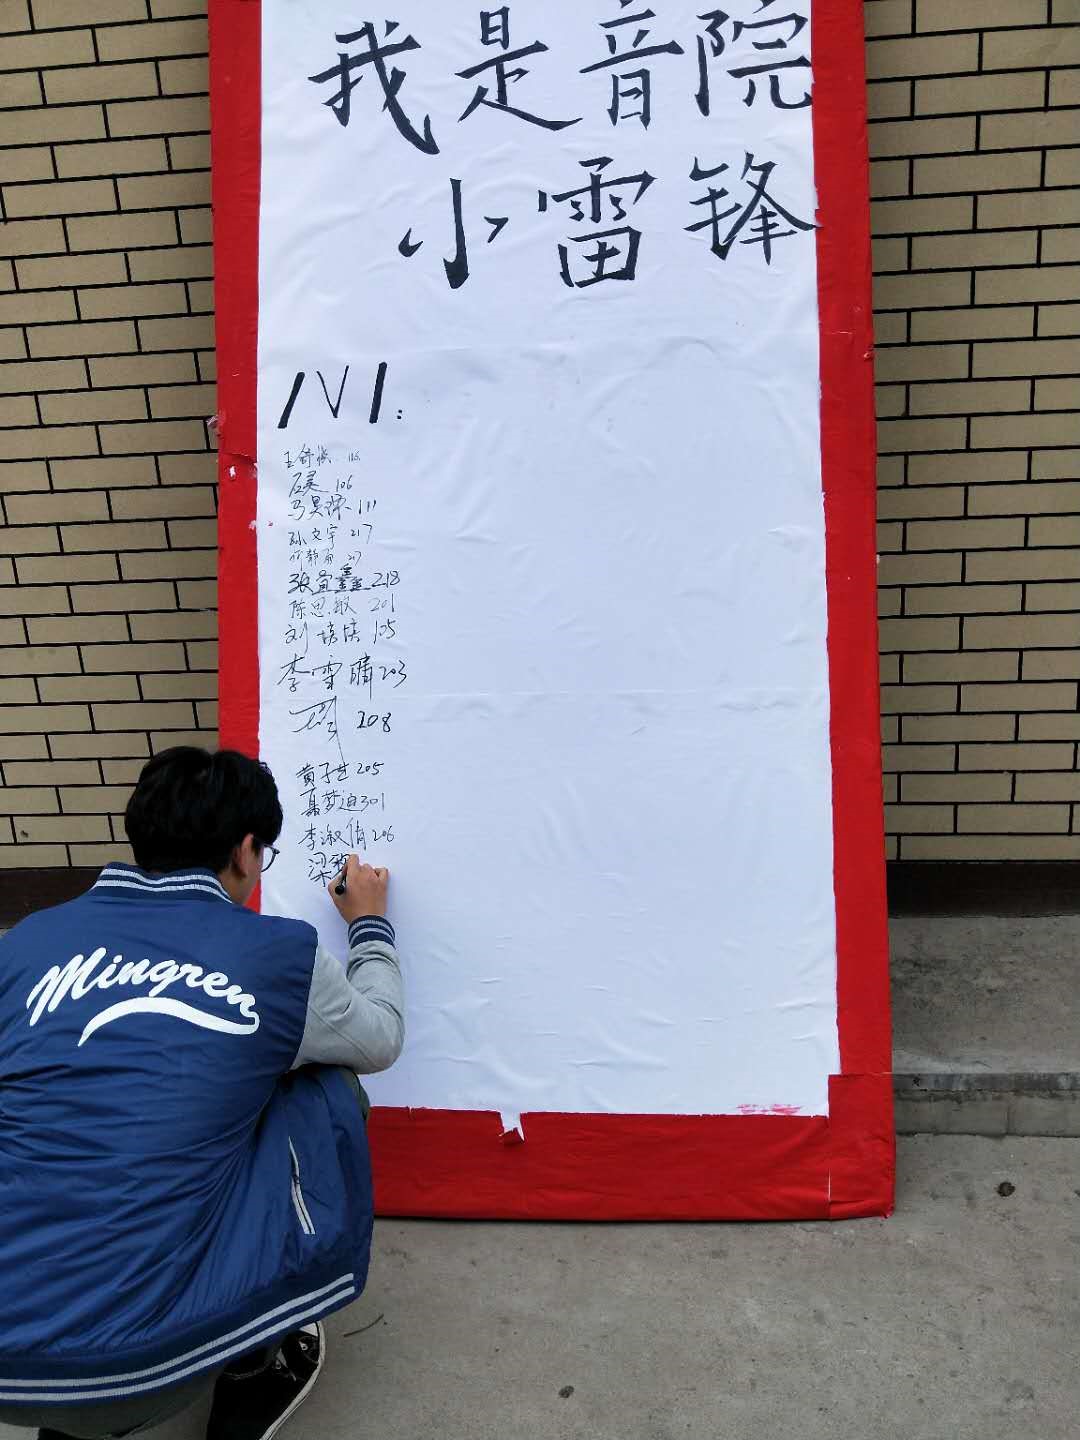 我是音院
小雷锋
1V1:
王舒悦 116
石灵 106
马昊 111
孙文宇 217
何静雨 217
张宜鑫 218
陈思敏 201
刘 105
李雪晴 203
208
黄子芝 205
聂梦迪 301
李淑倩 206
梁
Mingren